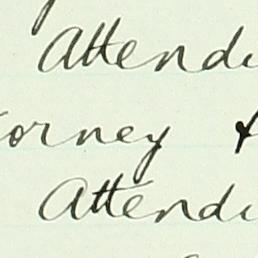 Attendi
orney &
Attendi